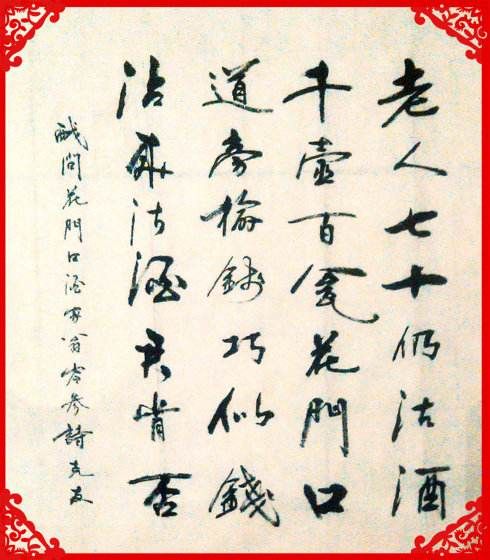 老人七十仍沽酒
千壺百瓮花門口
道旁榆巧似錢
來沽酒君肯否
戲問花門口酒家翁岑參詩克友